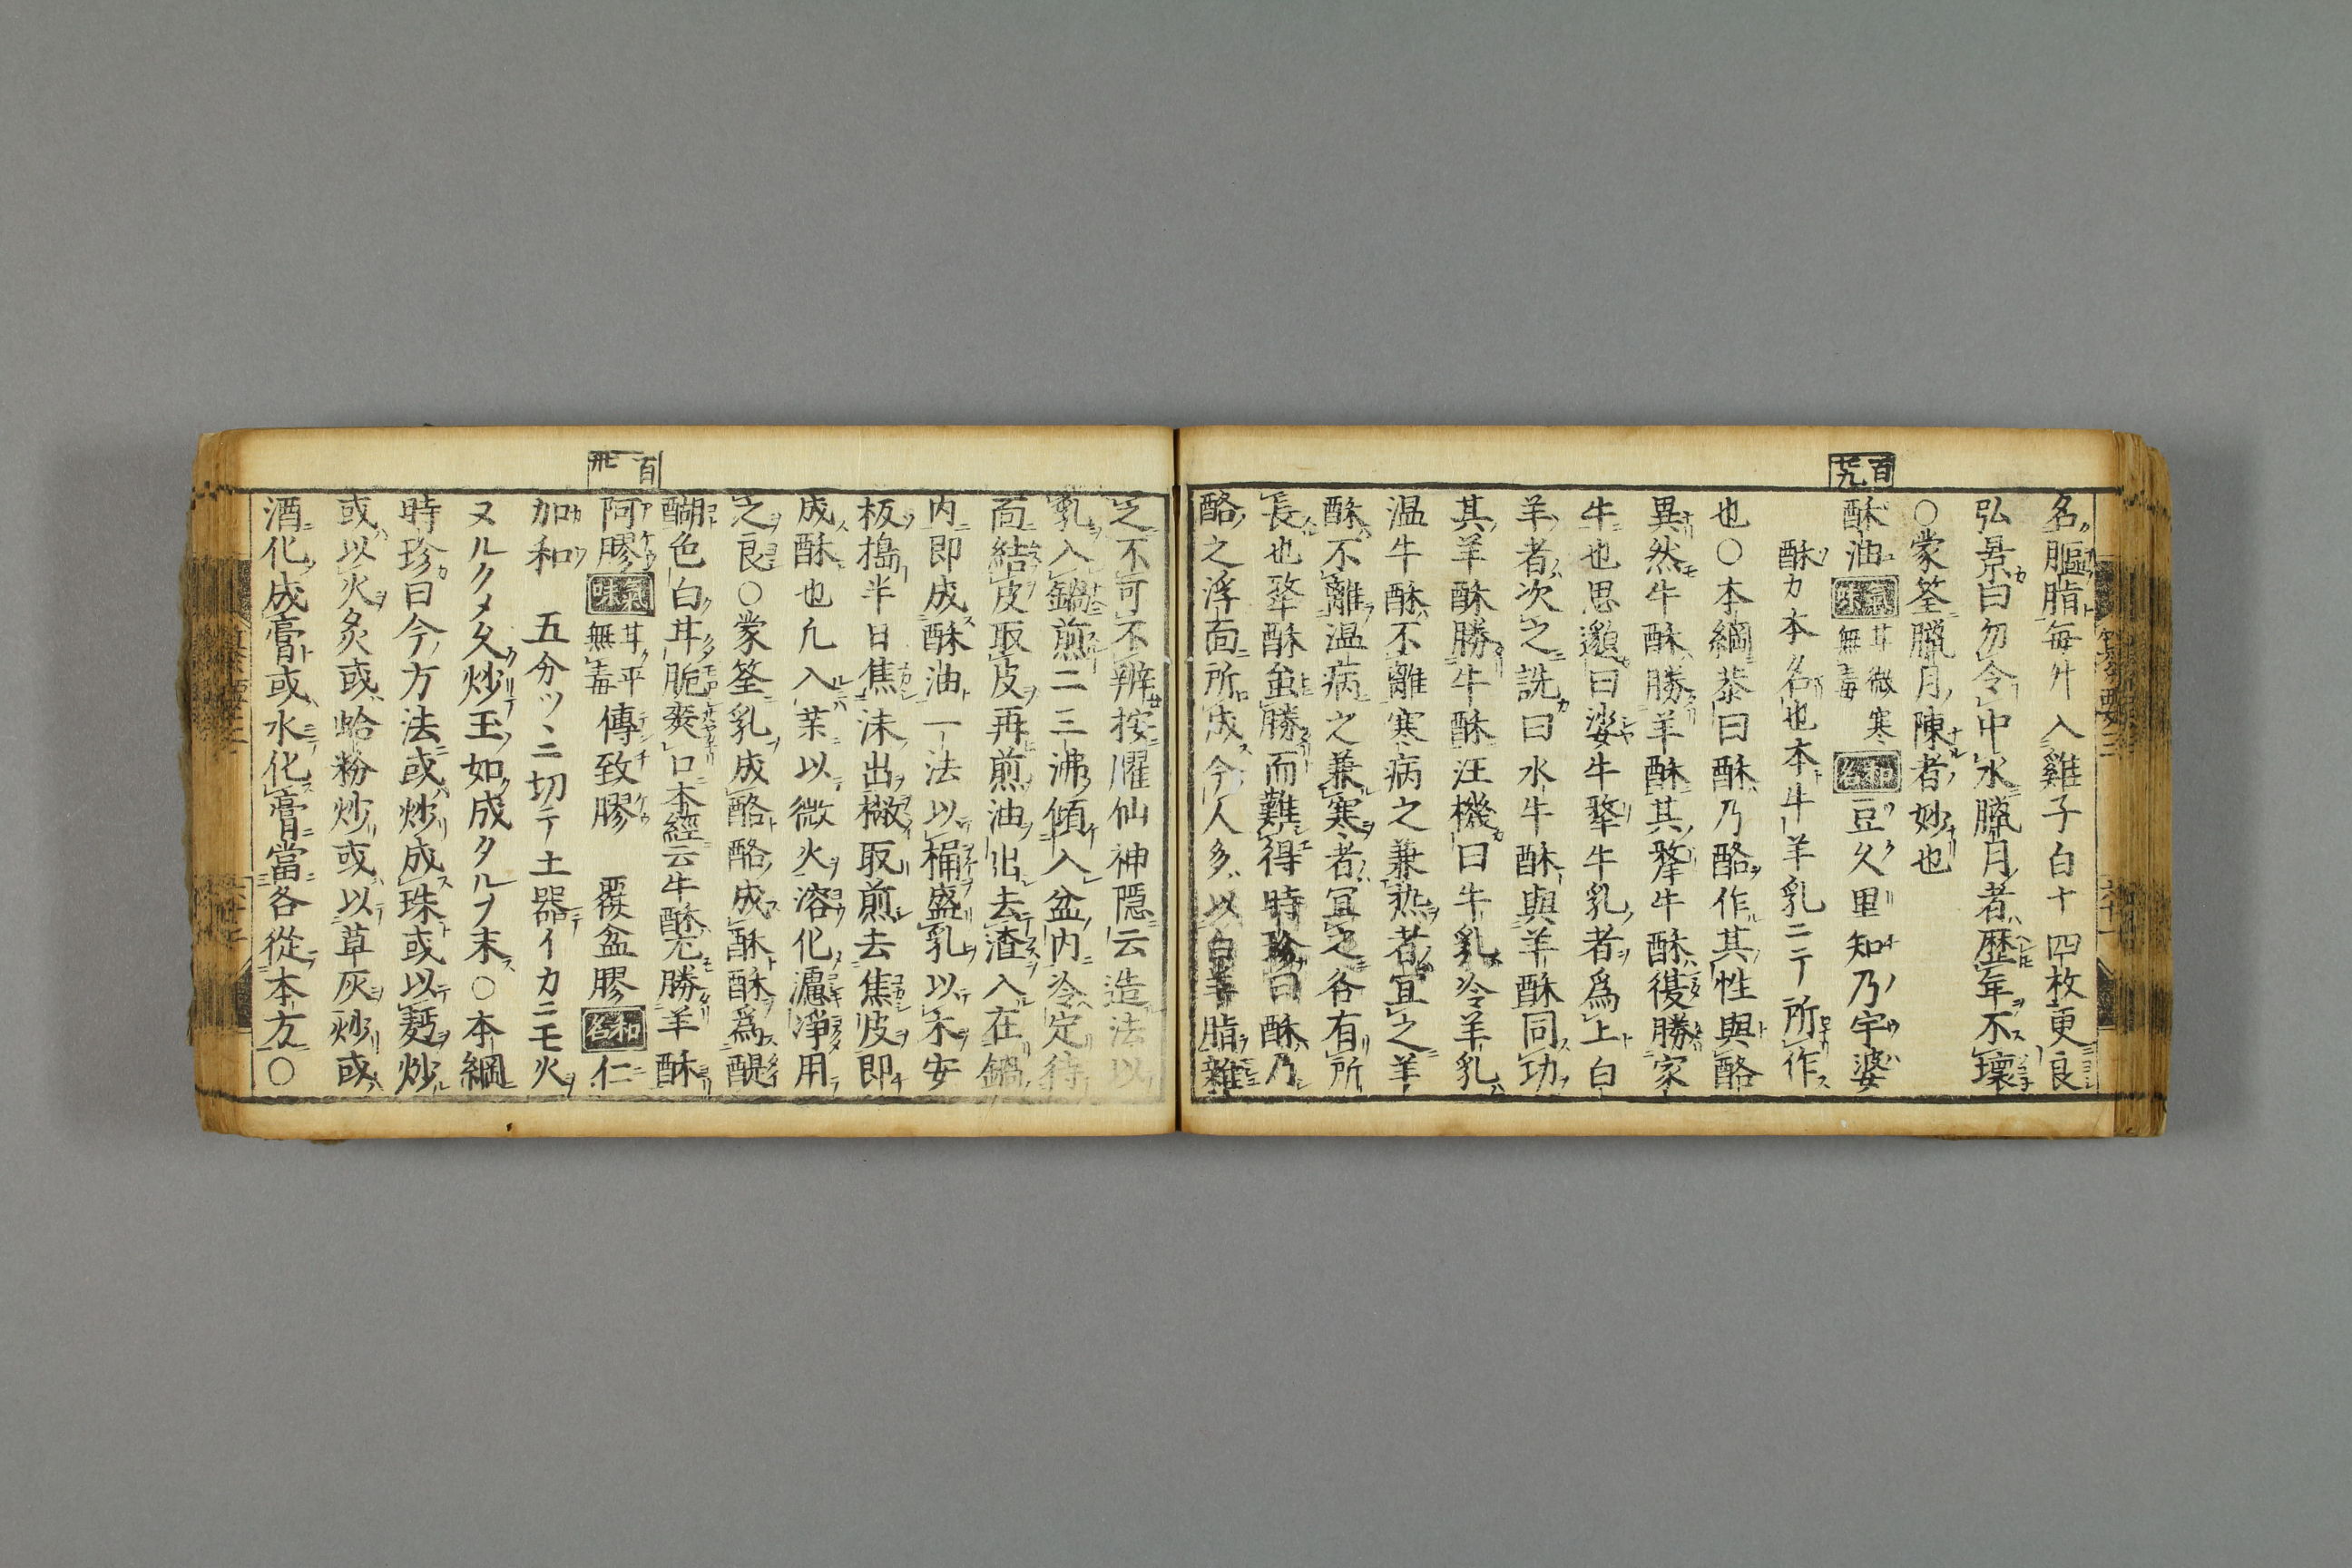 名膒脂毎升入雞子白十四枚更良
弘景曰勿令中水臘月者歴年不壊
○蒙筌臘月陳者妙也
百
酥油 氣味 甘微寒無毒 和名 豆久里知乃宇婆
酥カ本名也本牛羊乳ニテ所作
也○本綱恭曰酥乃酪作其性與酪
異然牛酥勝羊酥其犛牛酥復勝家
牛也思邈曰㸺牛犛牛乳者爲上白
羊者次之詵曰水牛酥與羊酥同功
其羊酥勝牛酥汪機曰牛乳冷羊乳
温牛酥不離寒病之兼熱者宜之羊
酥不離温病之兼寒者宜之各有所
長也犛酥虽勝而難得時珍曰酥乃
酪之浮面所成今人多以白羊脂雜
之不可不辨按臞仙神隱云造法以
乳入鍋煎二三沸傾入盆内冷定待
面結皮取皮再煎油出去渣入在鍋
内即成酥油一法以桶盛乳以木安
板搗半日焦沫出撇取煎去焦皮即
成酥也凢入薬以微火溶化濾淨用
之良○蒙筌乳成酪酪成酥酥爲醍
醐色白甘脆爽口本經云牛酥尤勝羊酥
百卅
阿膠 氣味 甘平無毒 傳致膠 覆盆膠 和名 仁
加和 五分ツヽニ切テ土器イカニモ火
ヌルクメ久炒玉如成タルヲ末○本綱
時珍曰今方法或炒成珠或以麪炒
或以火炙或蛤粉炒或以草灰炒或
酒化成膏或水化膏當各從本方○